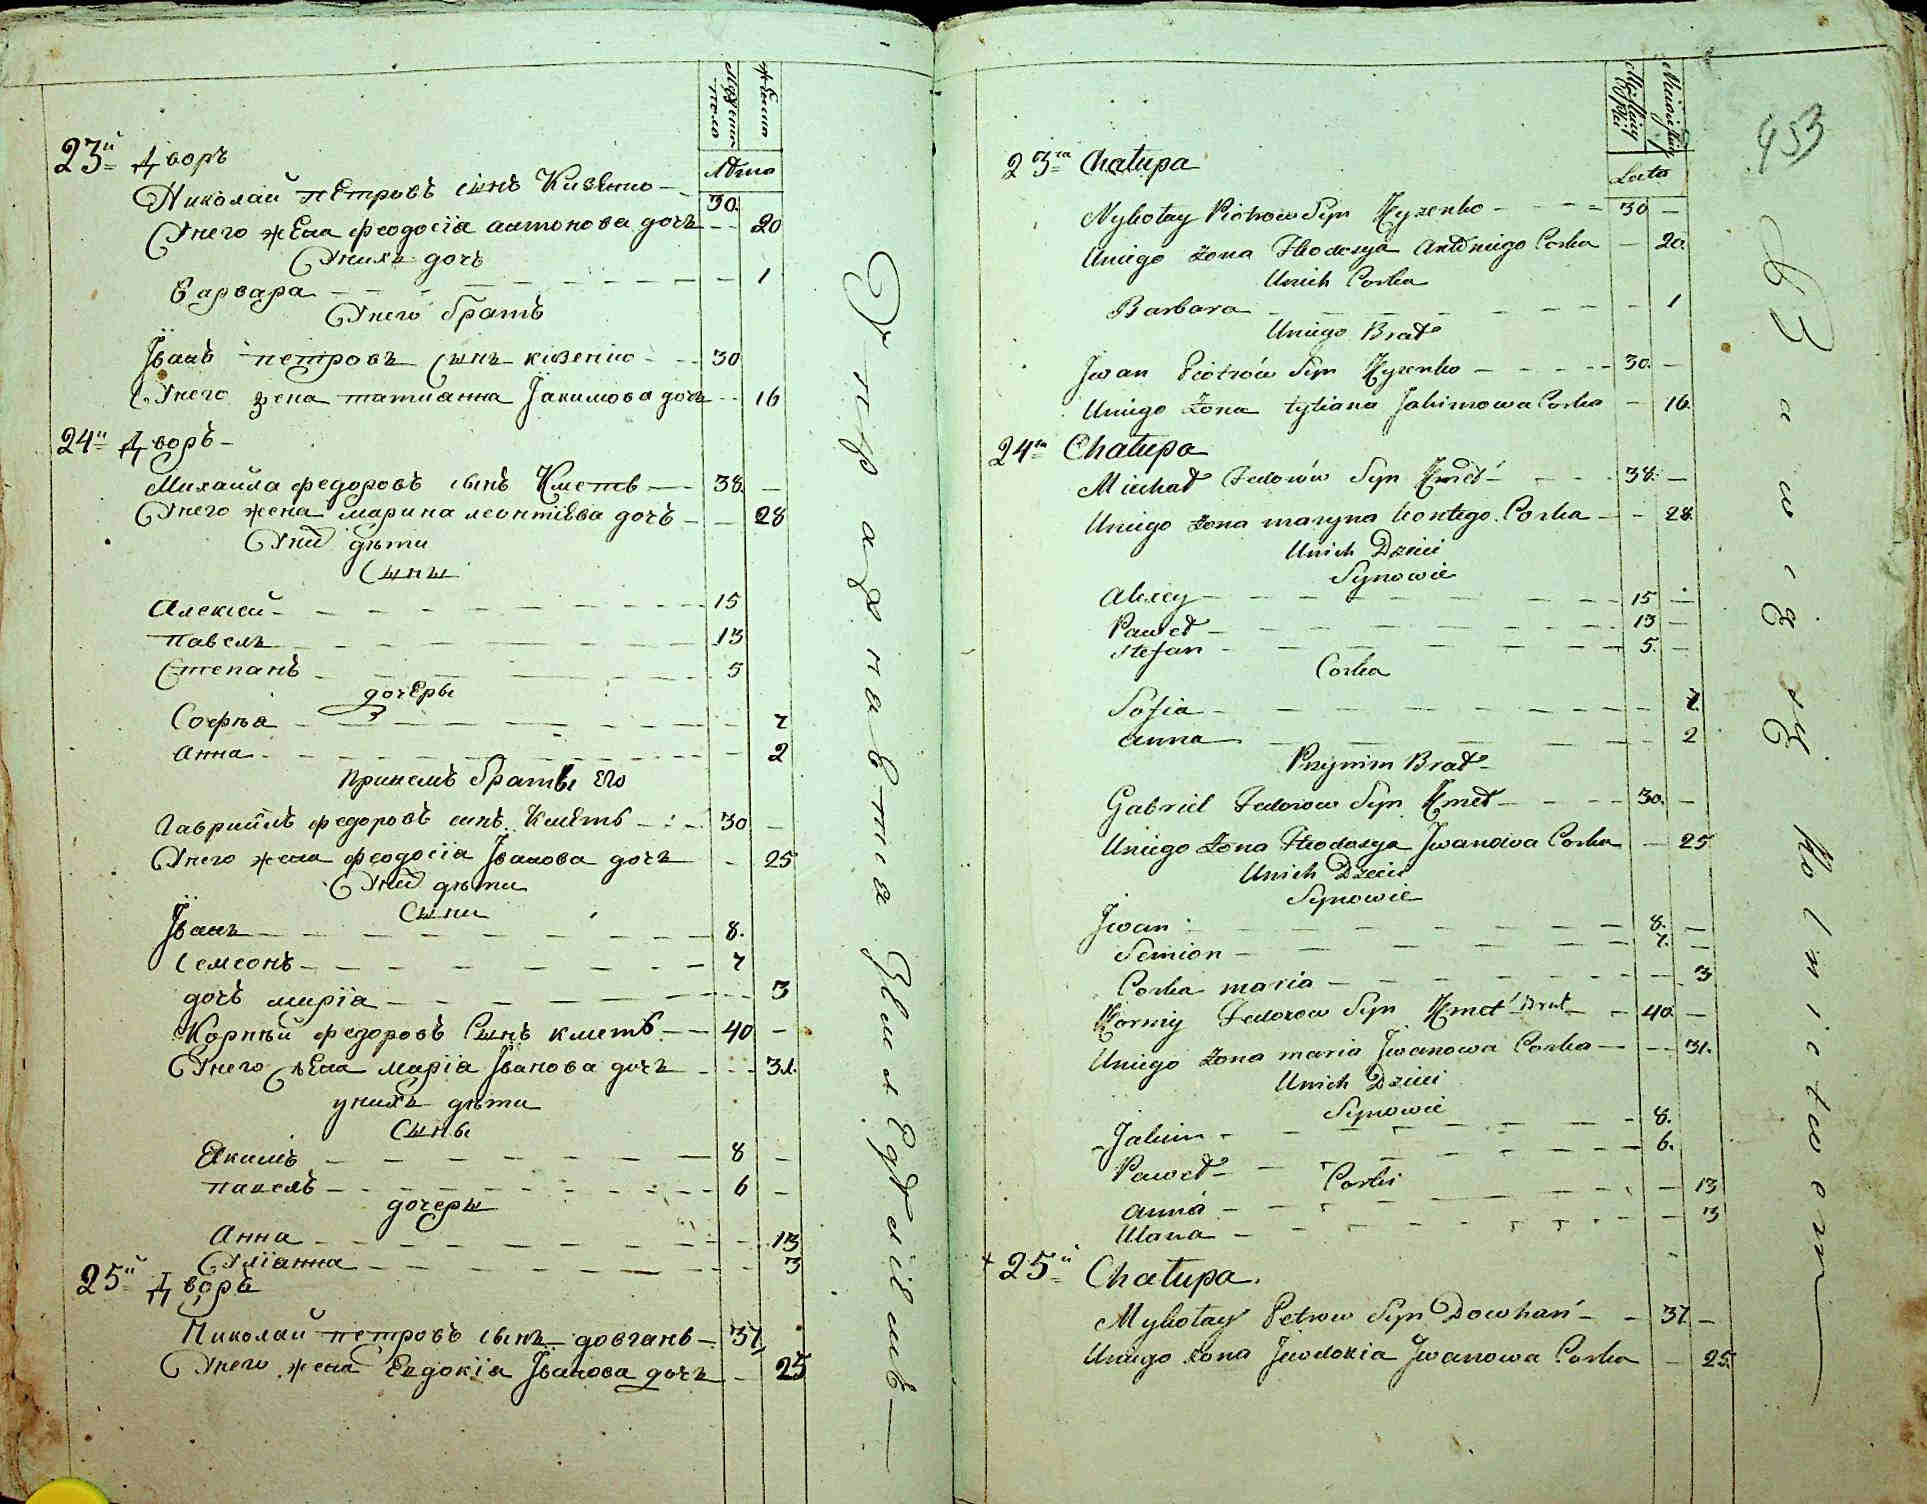 Мужеска пола
женска
Лѣта
23й Дворъ
Николай петровъ сынъ Кизенко 30
Унего жена феодосїа антонова дочъ 20
Унихъ дочъ
Варвара 1
Унего братъ
Їванъ петровъ сынъ кизенко 30
Унего жена татианна Їакимова дочъ 16
24й Дворъ
Михайла федоровъ сынъ Кметь 38
Унего жена марина леонтїева дочъ 28
Уних дѣти
Сыны
Алексей 15
павелъ 13
Степанъ 5
дочеры
Софѣа 7
Анна 2
принемъ братъ его
Гавриилъ федоровъ сынъ Кметь 30
Унего жена феодосїа Їванова дочъ 25
Уних дѣти
Сыни
Їванъ 8
Семеонъ 7
дочъ марїа 3
Корнѣй федоровъ Сынъ кметь 40
Унего жена марїа Їванова дочъ 31
унихъ дѣти
Сыны
Якимъ 8
павелъ 6
дочеры
Анна 13
Улїанна 3
25й Дворъ
Николай петровъ сынъ довгань 37
Унего жена Евдокїа Їванова дочъ 25
453
Lata
23cia Chałupa
Mykołay Piotrow Syn Kyzenko 30
Uniego żona Theodosya Antoniego Corka 20
Unich Corka
Barbara 1
Uniego Brat
Jwan Piotrów Syn Kyzenko 30
Uniego Żona tytiana Jakimowa Corka 16
24ta Chałupa
Michał Fedorów Syn Kmet' 38
Uniego żona maryna Leontego Corka 28
Unich Dzieci
Synowie
Alexey 15
Paweł 13
Stefan 5
Corka
Sofia 7
anna 2
Przynim Brat
Gabriel Fedorow Syn Kmet 30
Uniego żona Theodosya Jwanowa Corka 25
Unich Dzieci
Synowie
Jwan 8
Semion 7
Corka maria 3
Korniy Fedorow Syn Kmet' Brat 40
Uniego żona maria Jwanowa Corka 31
Unich Dzieci
Synowie
Jakim 8
Paweł 6
Corki
anna 13
Ulana 3
25 Chałupa
Mykołay Petrow Syn Dowhań 37
Uniego żona Jewdokia Jwanowa Corka 25